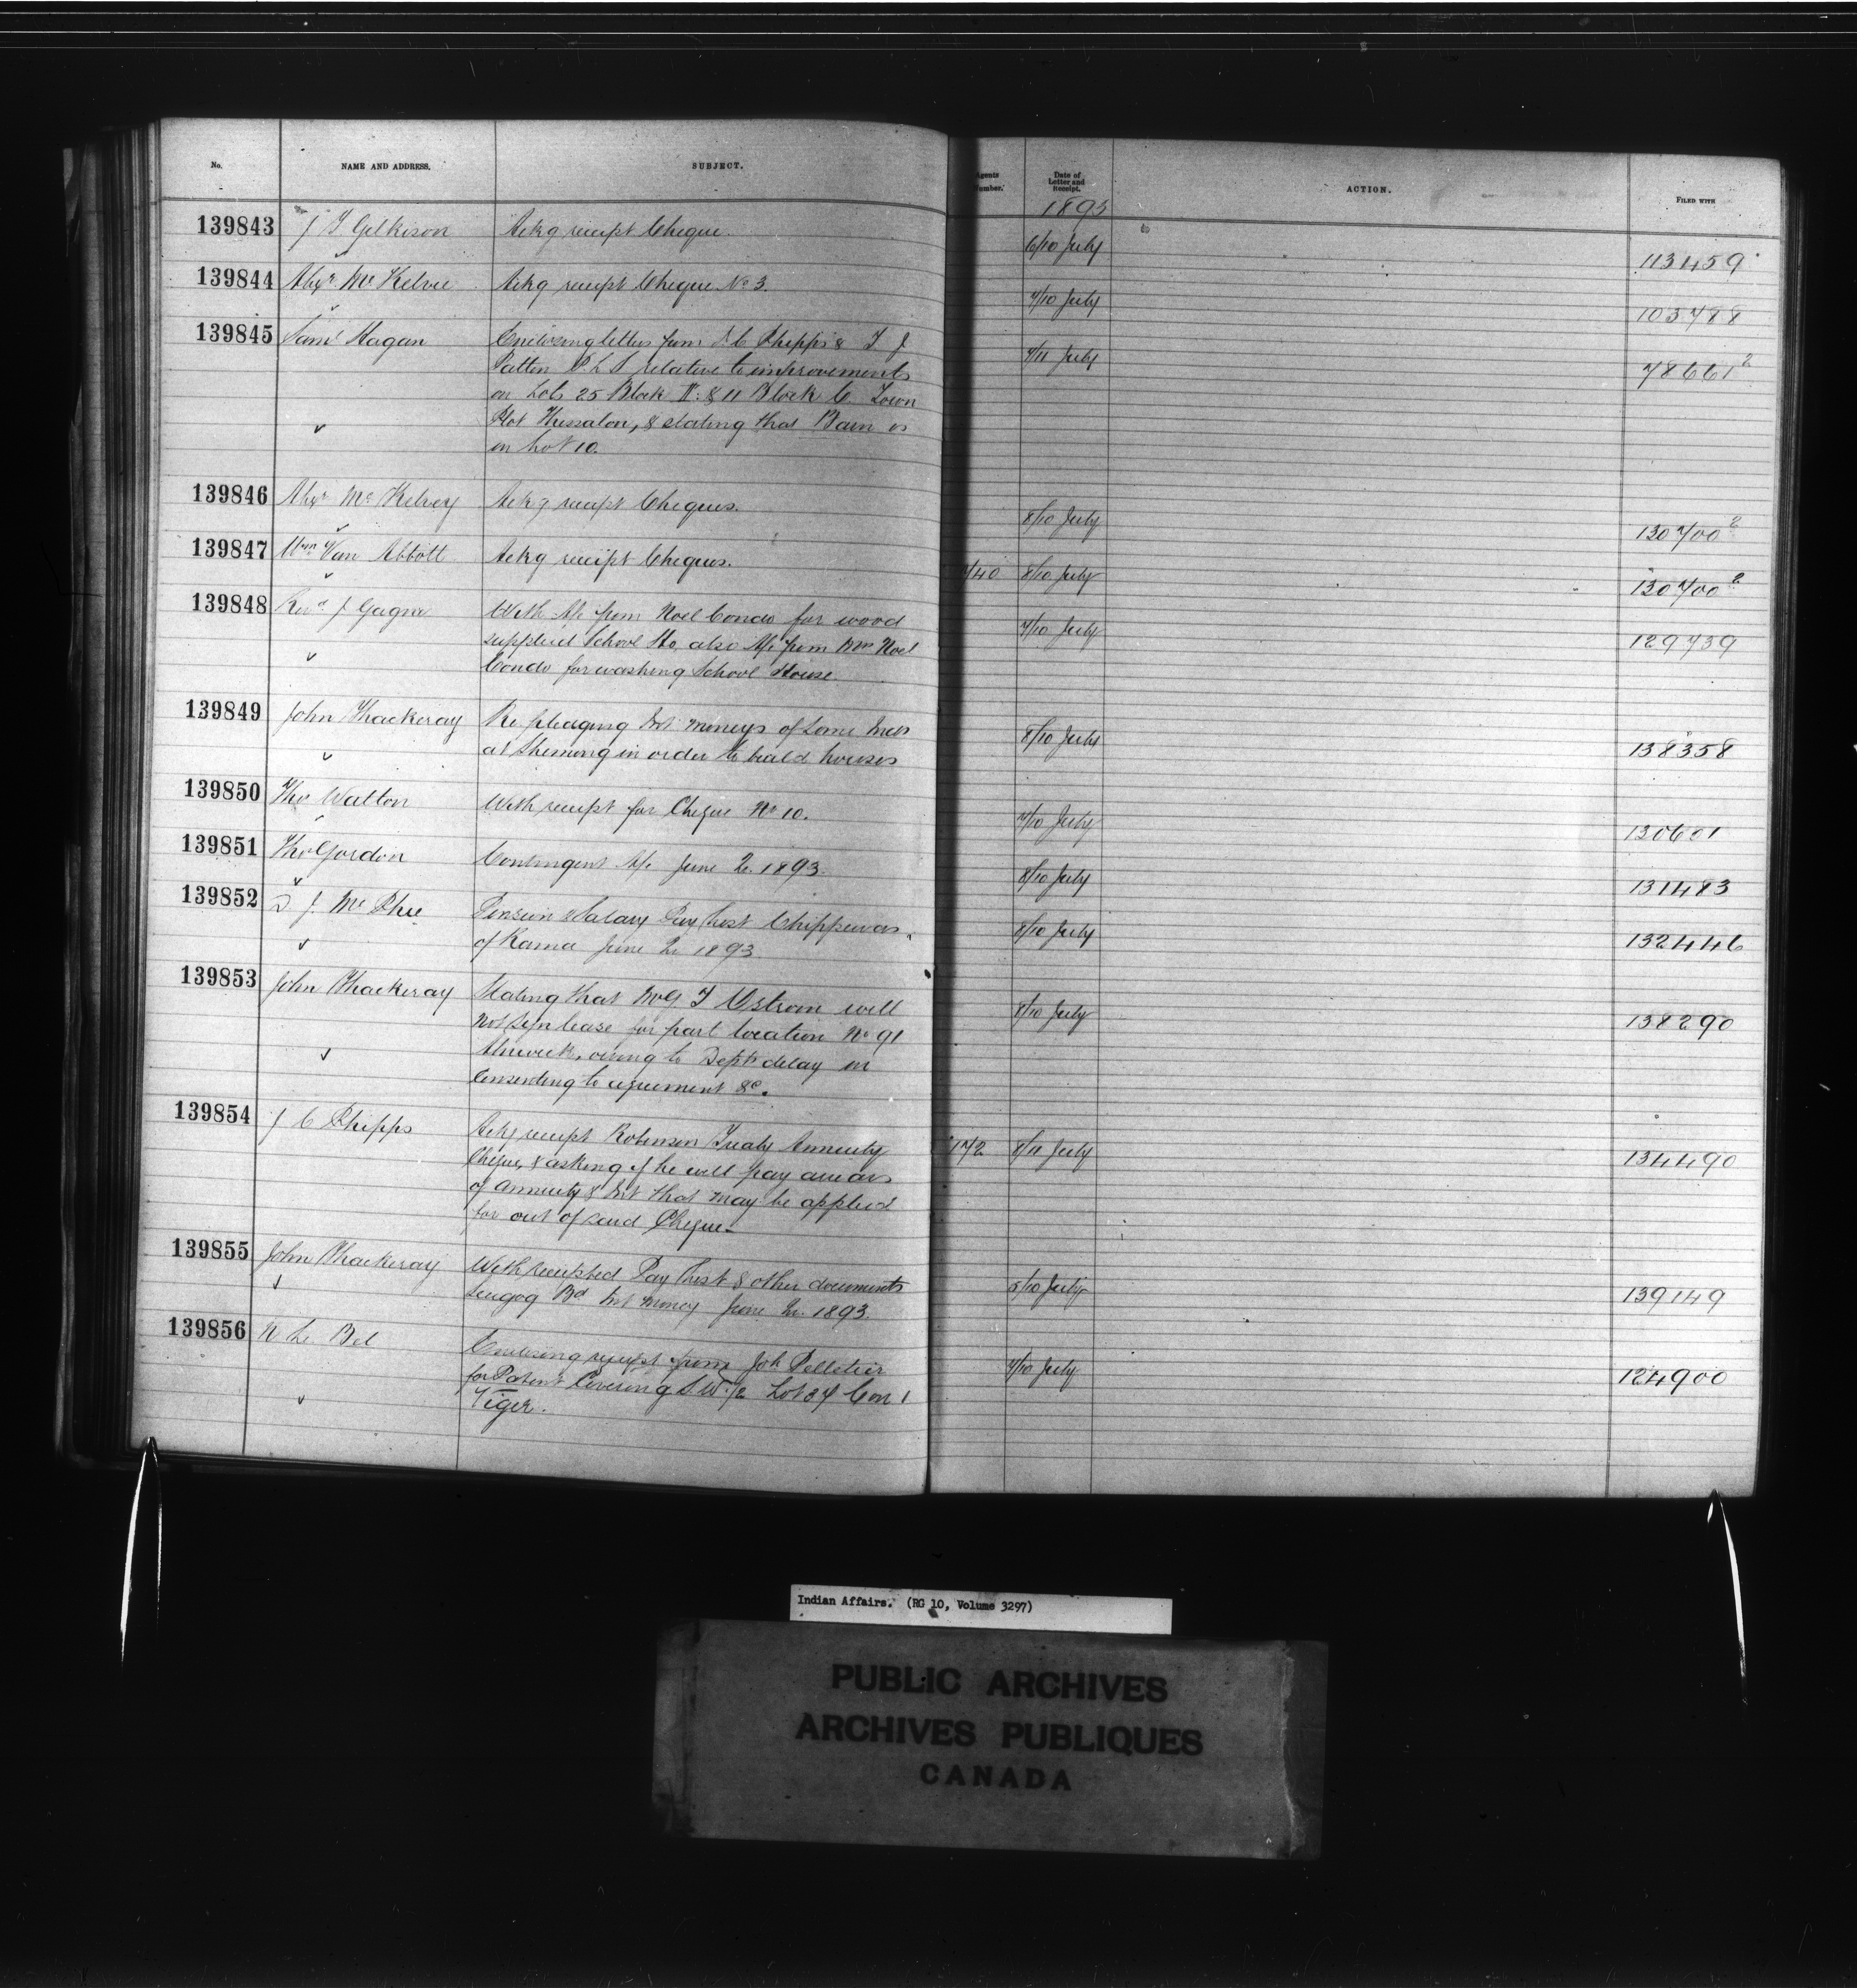 No. NAME AND ADDRESS. SUBJECT. Agents Number. Date of Letter and Receipt. ACTION. FILED WITH
1893
139843 J T Gilkison Ackg receipt Cheque. 6/10 July 113459
139844 Alexr McKelvie Ackg receipt Cheque No 3. 7/10 July 103788
139845 Saml Hagan Enclosing letters from J C Phipps & T J 7/11 July 78661 2
Patten P L S relative to improvements
on Lots 25 Block & 11 Block C. Town
Plot Thessalon, & stating that Barn is
on Lot 10.
139846 Alexr McKelvey Ackg receipt Cheques. 8/10 July 130700 2
139847 Wm Van Abbott Ackg receipt Cheques. 740 8/10 July 130700 2
139848 Revd J Gagne With A/c from Noel Condo for wood 7/10 July 129739
supplied School Ho. also A/c from Mrs Noel
Condo for washing School House
139849 John Thackeray Re pledging Int moneys of some Inds 8/10 July 138358
at in order to build houses
139850 Tho Walton With receipt for Cheque No 10. 7/10 July 130601
139851 Tho Gordon Contingent A/c June Qr. 1893. 8/10 July 131483
139852 D J McPhee Pension & Salary Pay List Chippewas 8/10 July 132446
of Rama June Qr 1893.
139853 John Thackeray Stating that Mr G T Ostrom will 8/10 July 138290
not sign lease for part location No 91
Alnwick, owing to Depts delay in
consenting to agreement &c.
139854 J C Phipps Ackg receipt Robinson Treaty Annuity 172 8/11 July 134490
Cheque, & asking if he will pay arrears
of annuity & Int that may be applied
for out of said Cheque
139855 John Thackeray With receipted Pay List & other documents 5/10 July 139149
Scugog Bd Int money June Qr. 1893.
139856 N Le Bel Enclosing receipt from Joh Pelletier 7/10 July 124900
for Patent Covering S W 1/2 Lot 34 Con 1
Viger.
Indian Affairs. (RG 10, Volume 3297)
PUBLIC ARCHIVES
ARCHIVES PUBLIQUES
CANADA